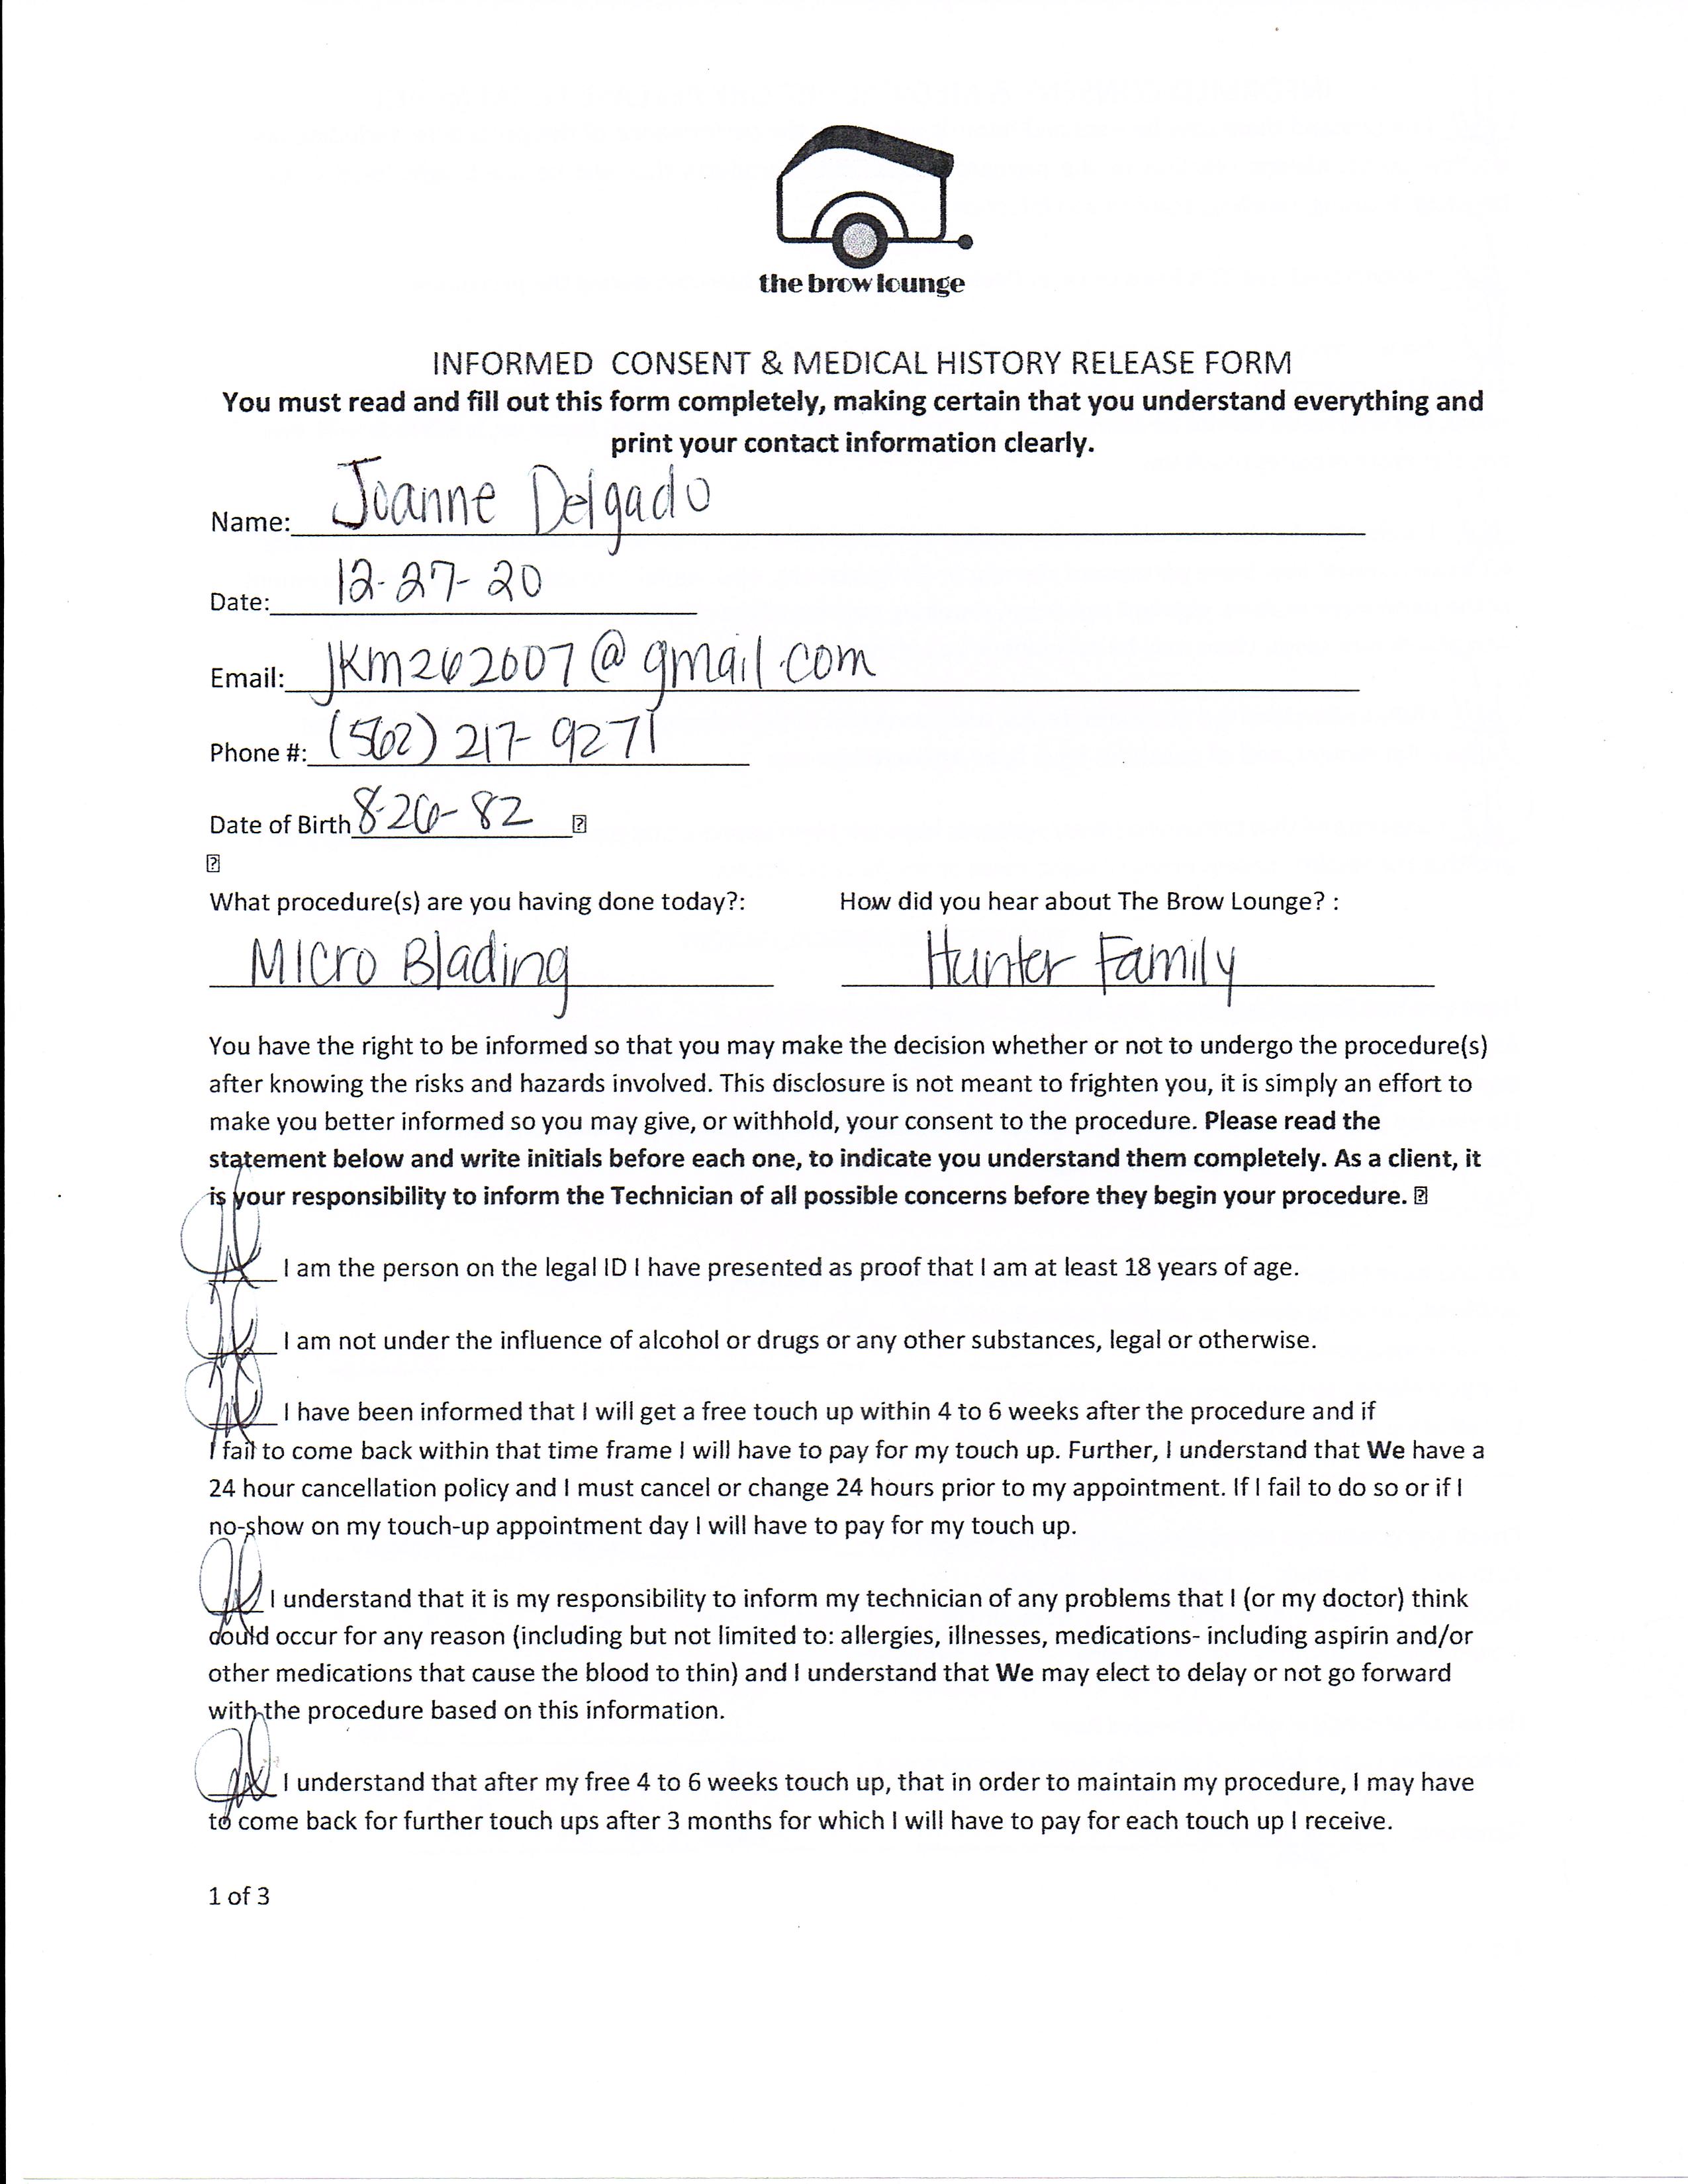 the brow lounge
INFORMED CONSENT & MEDICAL HISTORY RELEASE FORM
You must read and fill out this form completely, making certain that you understand everything and
print your contact information clearly.
Name: Joanne Delgado
Date: 12-27-20
Email: jkm262607@gmail.com
Phone #: (562) 217-9271
Date of Birth 8-26-82
What procedure(s) are you having done today?: How did you hear about The Brow Lounge? :
Micro Blading Hunter Family
You have the right to be informed so that you may make the decision whether or not to undergo the procedure(s)
after knowing the risks and hazards involved. This disclosure is not meant to frighten you, it is simply an effort to
make you better informed so you may give, or withhold, your consent to the procedure. Please read the
statement below and write initials before each one, to indicate you understand them completely. As a client, it
is your responsibility to inform the Technician of all possible concerns before they begin your procedure.
I am the person on the legal ID I have presented as proof that I am at least 18 years of age.
I am not under the influence of alcohol or drugs or any other substances, legal or otherwise.
I have been informed that I will get a free touch up within 4 to 6 weeks after the procedure and if
I fail to come back within that time frame I will have to pay for my touch up. Further, I understand that We have a
24 hour cancellation policy and I must cancel or change 24 hours prior to my appointment. If I fail to do so or if I
no-show on my touch-up appointment day I will have to pay for my touch up.
I understand that it is my responsibility to inform my technician of any problems that I (or my doctor) think
could occur for any reason (including but not limited to: allergies, illnesses, medications- including aspirin and/or
other medications that cause the blood to thin) and I understand that We may elect to delay or not go forward
with the procedure based on this information.
I understand that after my free 4 to 6 weeks touch up, that in order to maintain my procedure, I may have
to come back for further touch ups after 3 months for which I will have to pay for each touch up I receive.
1 of 3